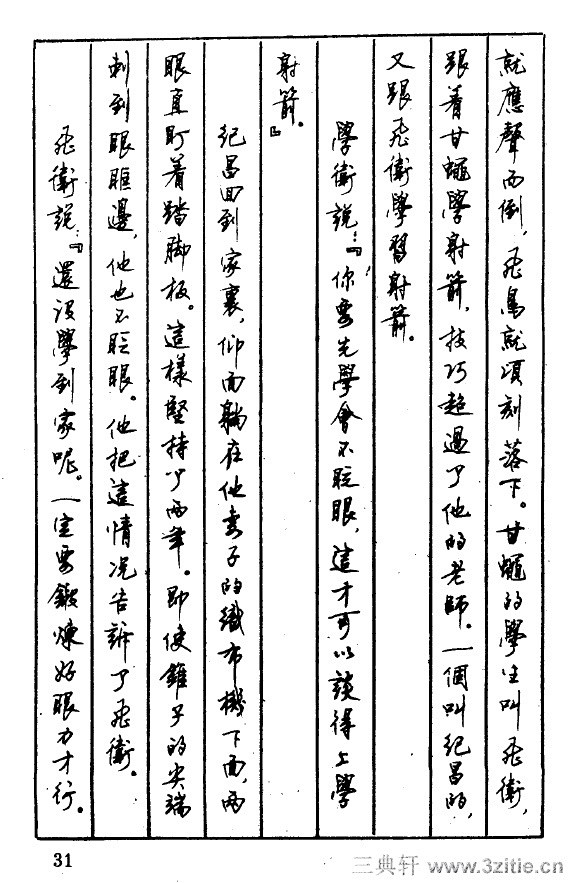 就應聲而倒，飛鳥就頃刻落下。甘蠅的學生叫飛衛，
跟着甘蠅學射箭，技巧超過了他的老師。一個叫紀昌的，
又跟飛衛學習射箭。
學衛說：『你要先學會不眨眼，這才可以談得上學
射箭。』
紀昌回到家裏，仰面躺在他妻子的織布機下面，兩
眼直盯着踏脚板。這樣堅持了兩年。即使錐子的尖端
刺到眼眶邊，他也不眨眼。他把這情况告訴了飛衛。
飛衛說：『還没學到家呢。一定要鍛煉好眼力才行。
31
三典轩 www.3zitie.cn